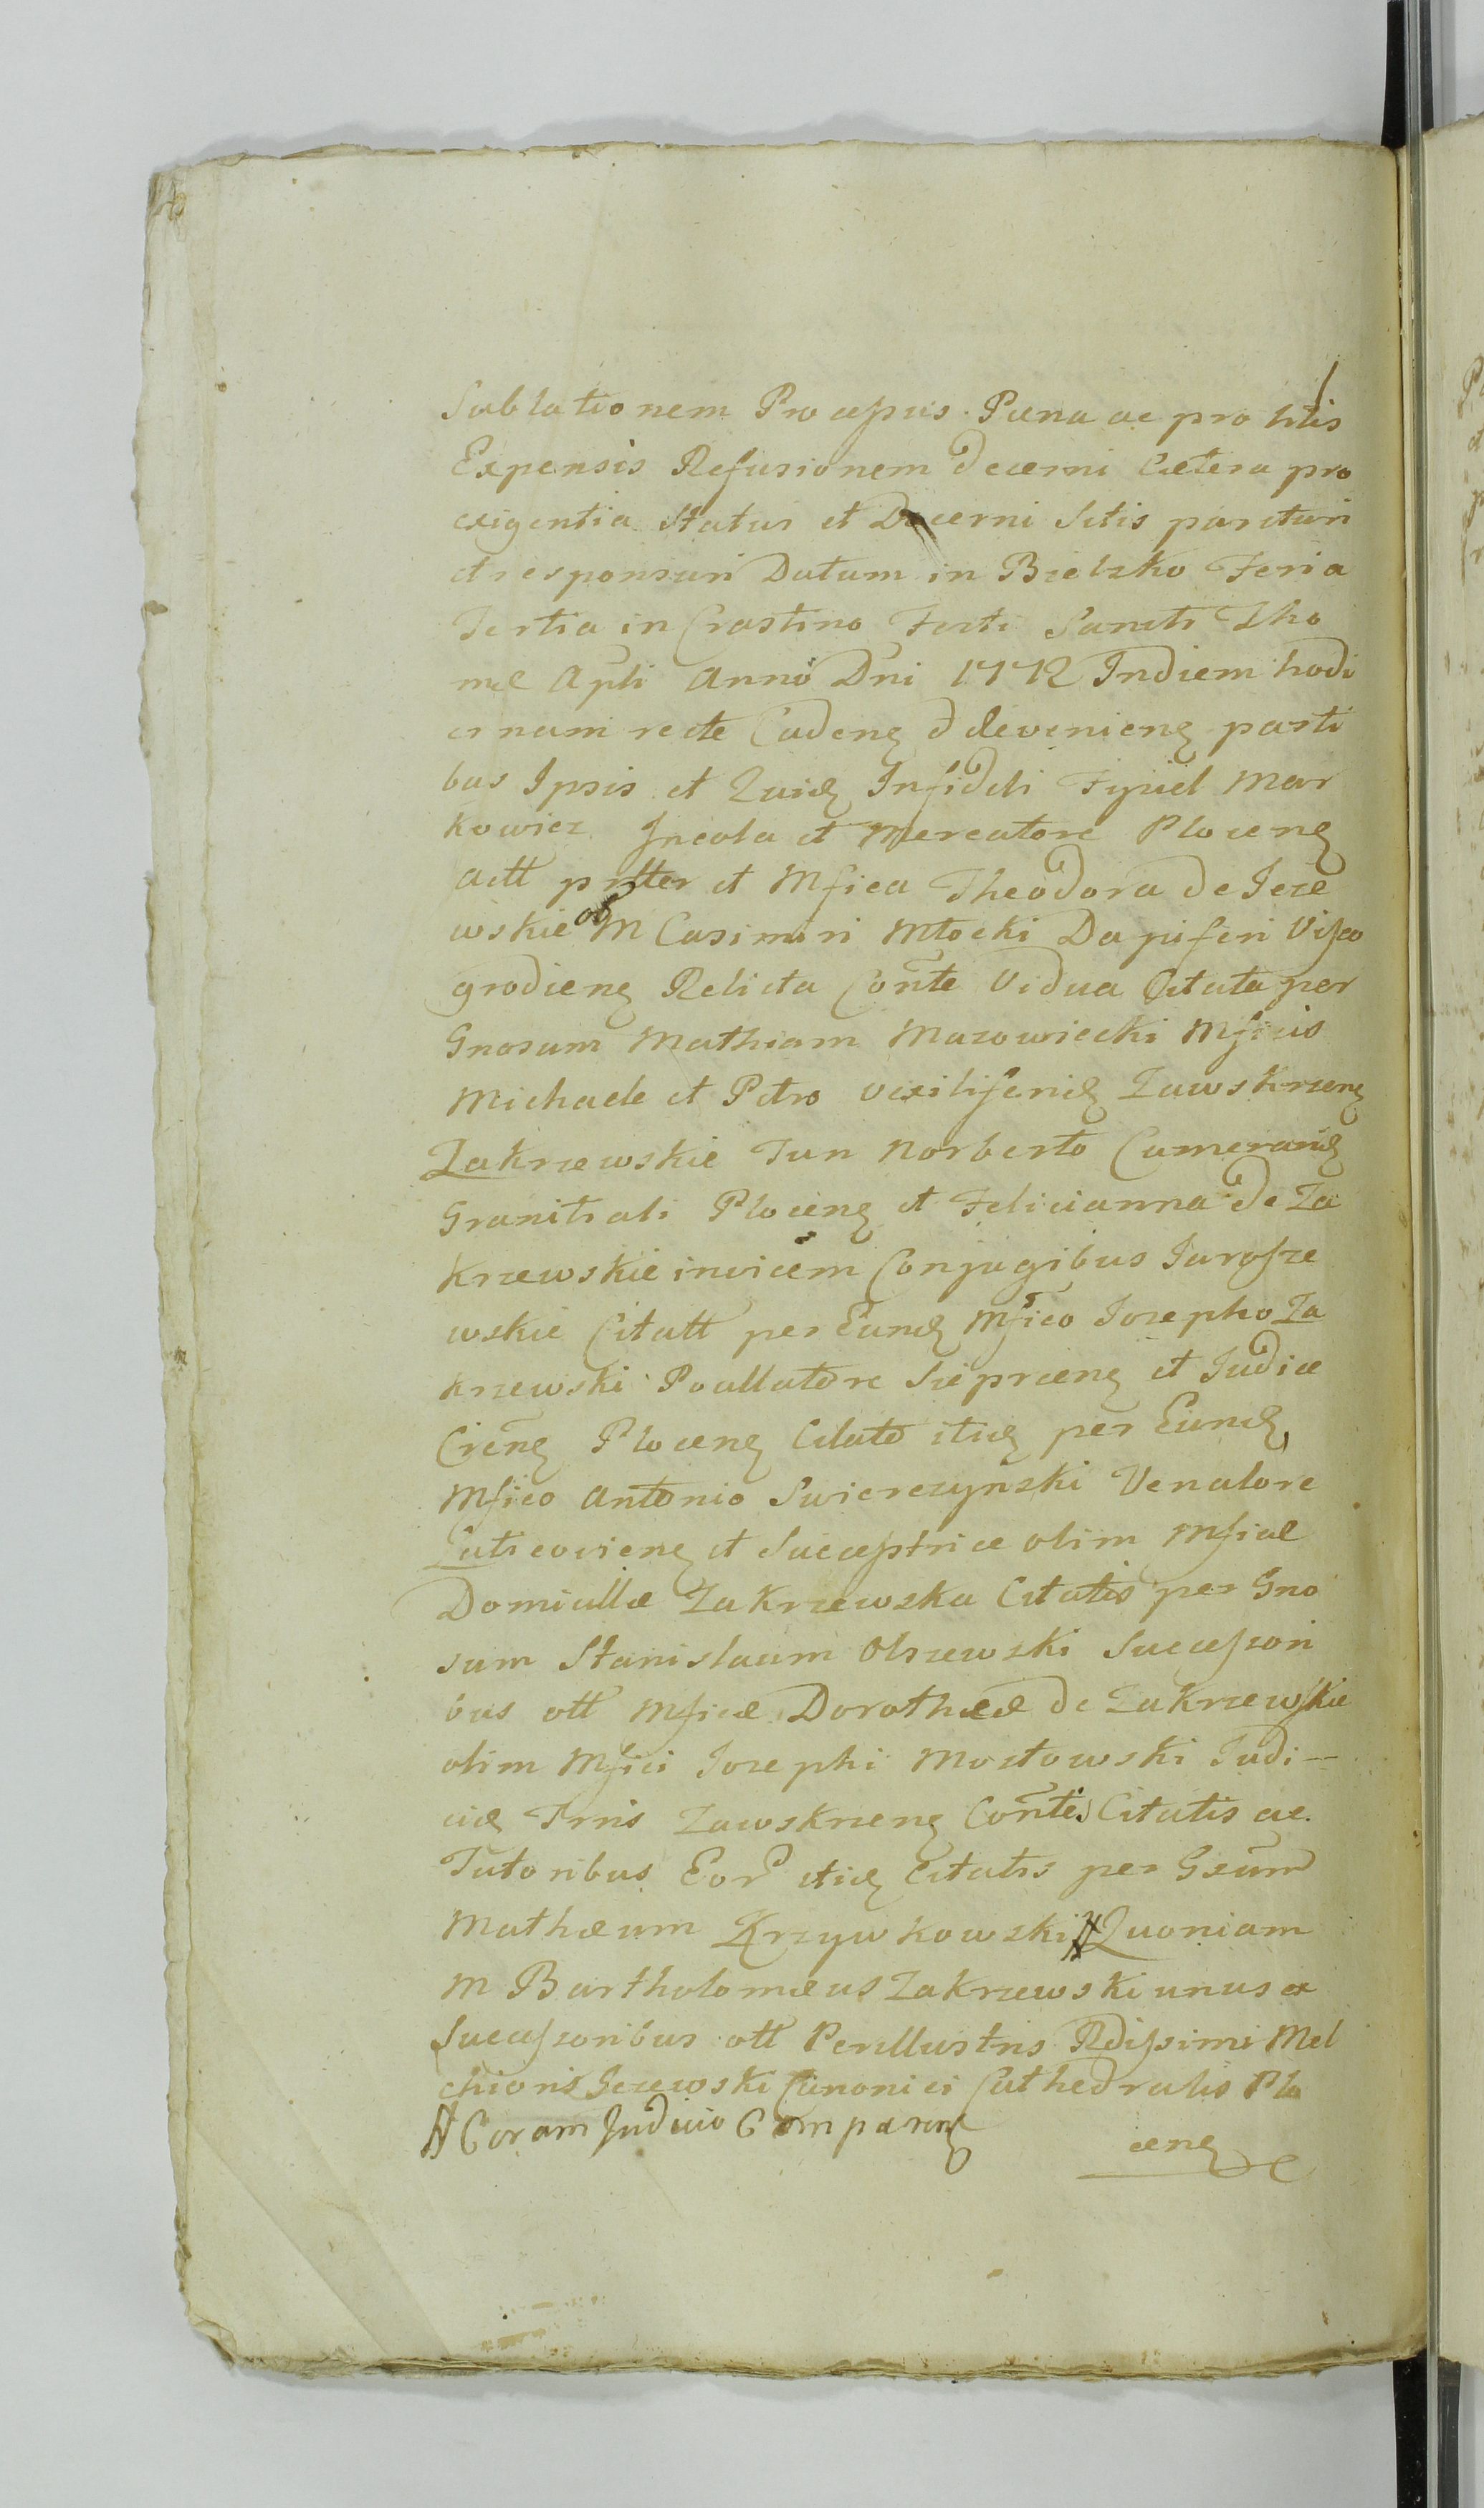 Sublationem Processus Paena ac pro litis
Expensis Refusionem decerni Caetera pro
exigentia Status et Decerni Scitis parituri
et responsuri Datum in Bielzko Feria
Tertia in Crastino Festi Sancti Tho
mae Apli Anno Dni 1772 Indiem hodi
ernam recte Cadenę devenienę parti
bus Ipsis et Quidę Infideli Fyszel Mar
kowicz Incola et Mercatore Plocenę
Actt et Mfica Theodora de Jeze
wskie M Casimiri Młocki Dapiferi Visso
grodienę Relicta Conte Vidua Citata per
Gnosum Mathiam Mazowiecki Mficis
Michaele et Petro vexiliferidę Zawskrzenę
Zakrzewskie Tun Norberto Cameraridę
Granitiali Plocenę et Felicianna de Za
krzewskie invicem Conjugibus Jarosze
wskie Citatt per Eundę Mfico Josepho Za
krzewski Pocillatore Sieprcenę et Judice
Crenę Plocenę Citato itidę per Eundę
Mfico Antonio Swierczynski Venatore
et Succestrice olim Mficae
Domicellae Zakrzewska Citatis per Gno
sum Stanislaum Olszewski Successori
bus ott Mficae Dorotheae de Zakrzewskie
olim Mfici Josephi Mostowski Judi-
cię Trris Zawskrzenę Contis Citatis ac
Tutoribus Eor itidę Citatis per Gsum
Mathaeum Krzywkowski # Quoniam
M Bartholomaeus Zakrzewski unus ex
Successoribus ott Perillustris Rdissimi Mel
chioris Jezewski Canonici Cathedralis Plo
# Coram Judicio Comparenę
cenę